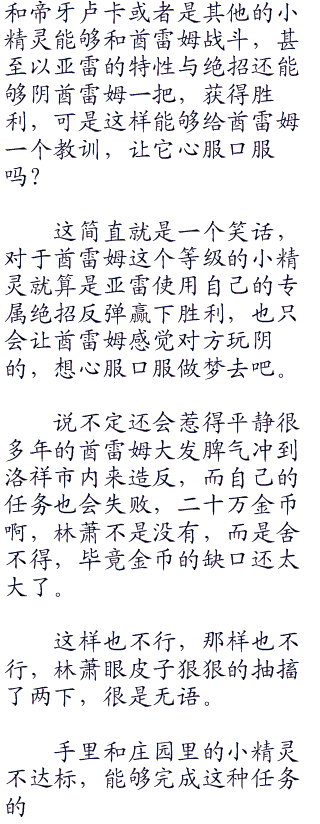 和帝牙卢卡或者是其他的小
精灵能够和酋雷姆战斗，甚
至以亚雷的特性与绝招还能
够阴酋雷姆一把，获得胜
利，可是这样能够给酋雷姆
一个教训，让它心服口服
吗？
这简直就是一个笑话，
对于酋雷姆这个等级的小精
灵就算是亚雷使用自己的专
属绝招反弹赢下胜利，也只
会让酋雷姆感觉对方玩阴
的，想心服口服做梦去吧。
说不定还会惹得平静很
多年的酋雷姆大发脾气冲到
洛祥市内来造反，而自己的
任务也会失败，二十万金币
啊，林萧不是没有，而是舍
不得，毕竟金币的缺口还太
大了。
这样也不行，那样也不
行，林萧眼皮子狠狠的抽搐
了两下，很是无语。
手里和庄园里的小精灵
不达标，能够完成这种任务
的